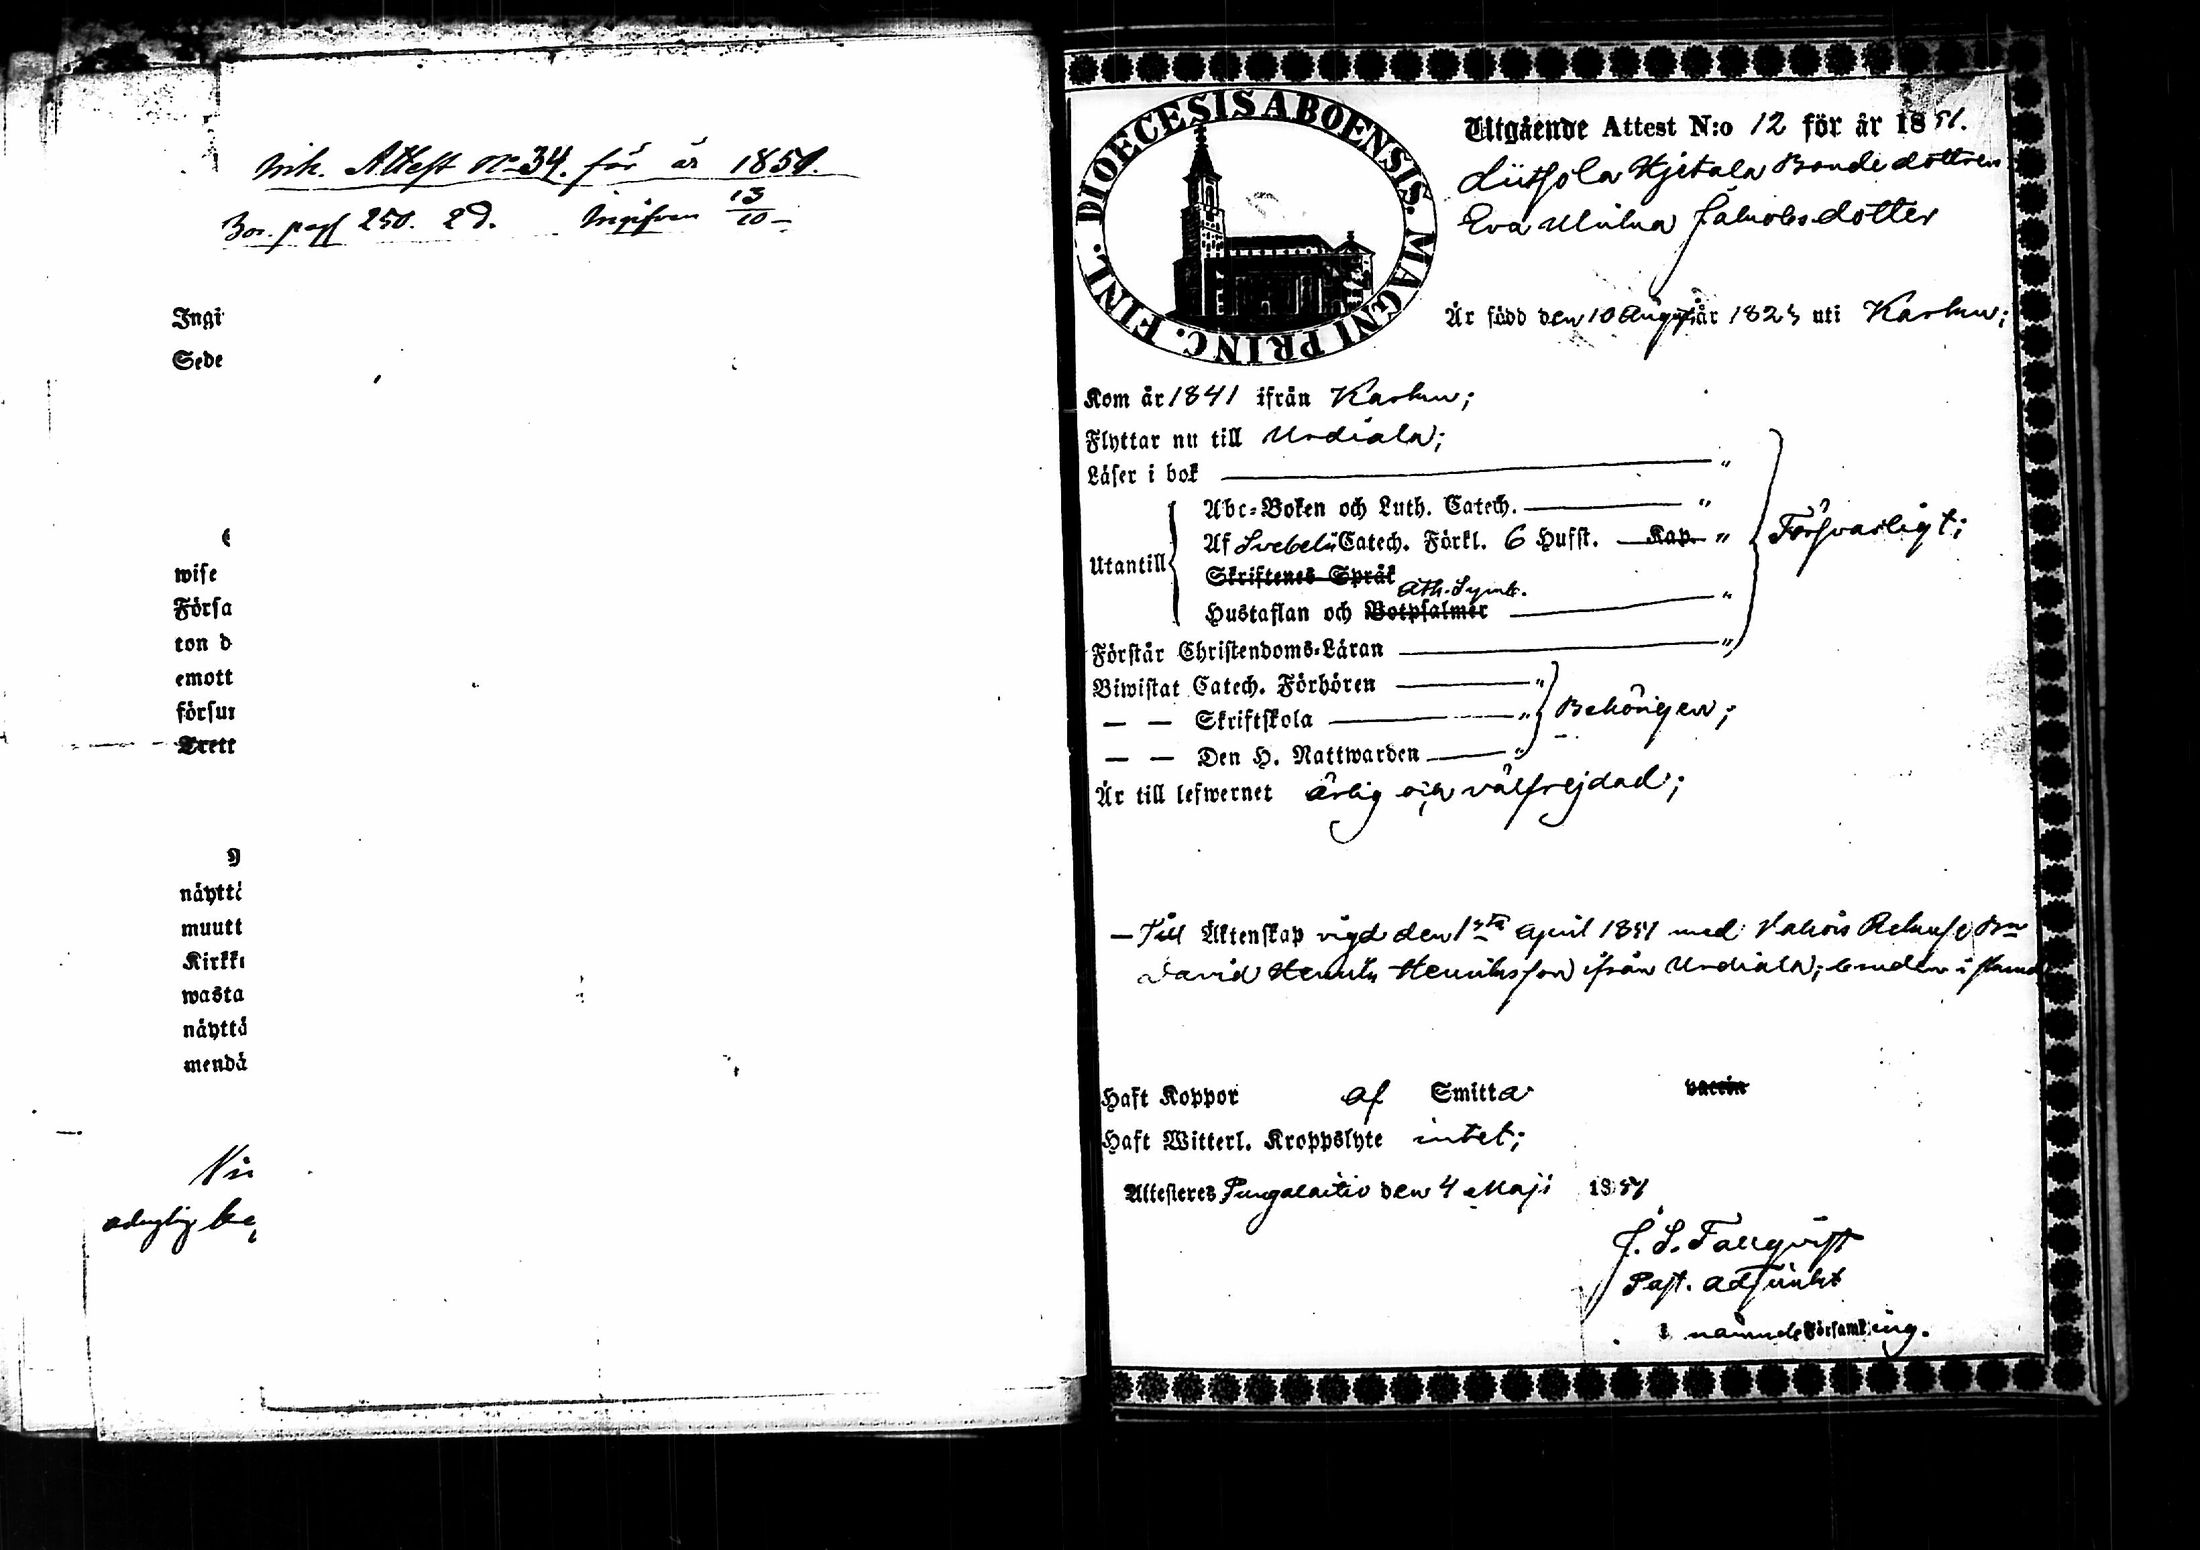 Ink. Attest No 34. för år 1850.
Bos. pag 250. 2d. Ingifven 13/10
Ingi
Sede
wise
Församl
ton d
emott
försum
Trett
näyttä
muutt
Kirkk
wasta
näyttä
mendä
DIOECESIS ABOENSIS. MAGNI PRINC. FINL.
Utgående Attest N:o 12 för år 1851.
Liitsola Kjetala Bonde dottren
Eva Jakobsdotter
Är född den 10 Aug. år 1823 uti Karkku;
Kom år 1841 ifrån Karkku;
Flyttar nu till Urdiala;
Läser i bok "
Utantill
Abc-Boken och Luth. Catech. "
Af Svebelii Catech. Förkl. 6 Hufst. Kap. "
Skriftenes Språk
Ath. Symb.
Hustaflan och Botpsalmer "
Försvarligt;
Förstår Christendoms-Läran "
Biwistat Catech. Förhören "
— — Skriftskola "
— — Den H. Nattwarden "
Behörigen;
Är till lefwernet ärlig och välfrejdad;
— Till Äktenskap vigd den 1sta April 1851 med
David Henrik Henriksson ifrån Urdiala;
Haft Koppor af Smitta vaccin
Haft Witterl. Kroppslyte intet;
Attesteres Pungalaitio den 4 Maji 1851
J. S. Fallqvist
Past. adjunkt
i nämnde Församling.